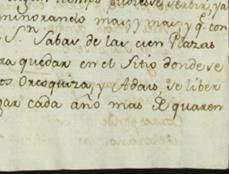 minorando mas, y mas, y q.e con
S.n Sabas de las cien Plazas
ra quedar en el Sitio donde se
os Orcoquiza, y Adais, se liber
gar cada año mas de quaren